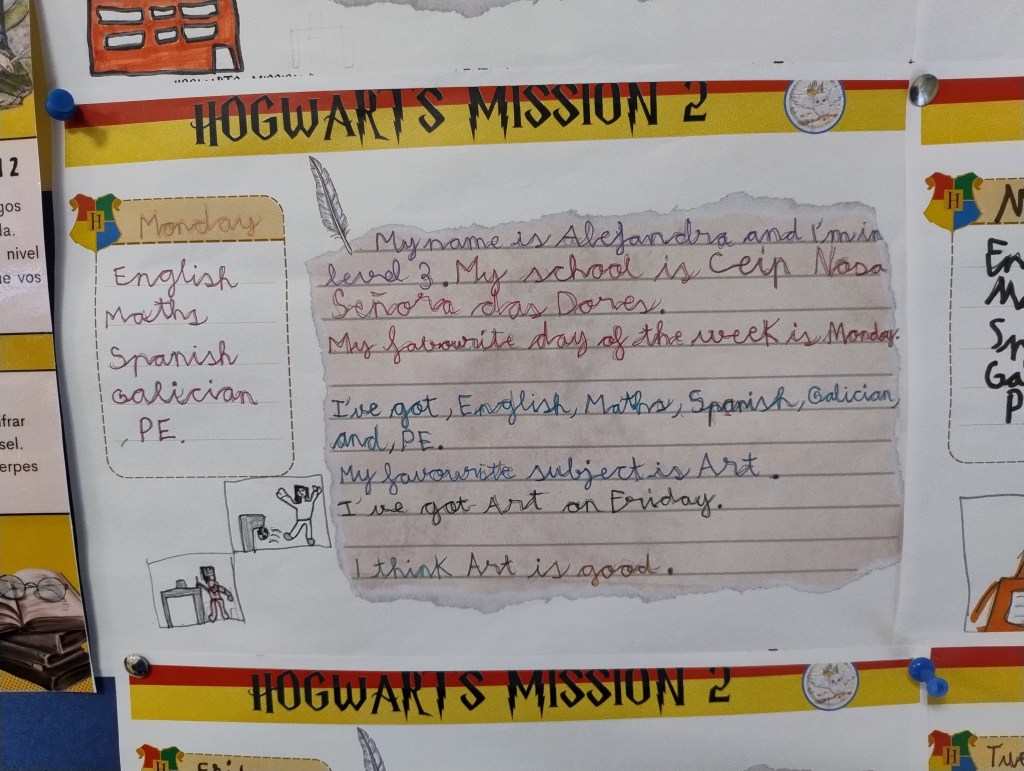 HOGWARTS MISSION 2
Monday
English
Maths
Spanish
Galician
, PE.
My name is Alejandra and I'm in
level 3. My school is Ceip Nosa
Señora das Dores.
My favourite day of the week is Monday.
I've got, English, Maths, Spanish, Galician,
and, PE.
My favourite subject is Art.
I've got Art on Friday.
I think Art is good.
HOGWARTS MISSION 2
2
nivel
vos